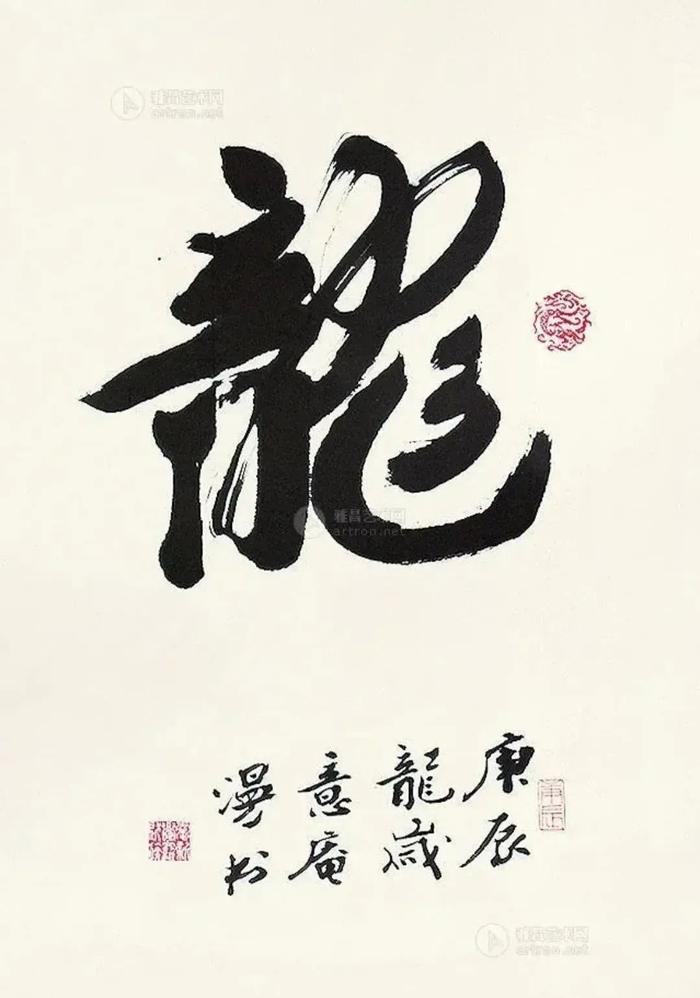 雅昌艺术网
artron.net
龍
雅昌艺术网
artron.net
庚辰
龍歲
意庵
漫书
庚辰
雅昌艺术网
artron.net